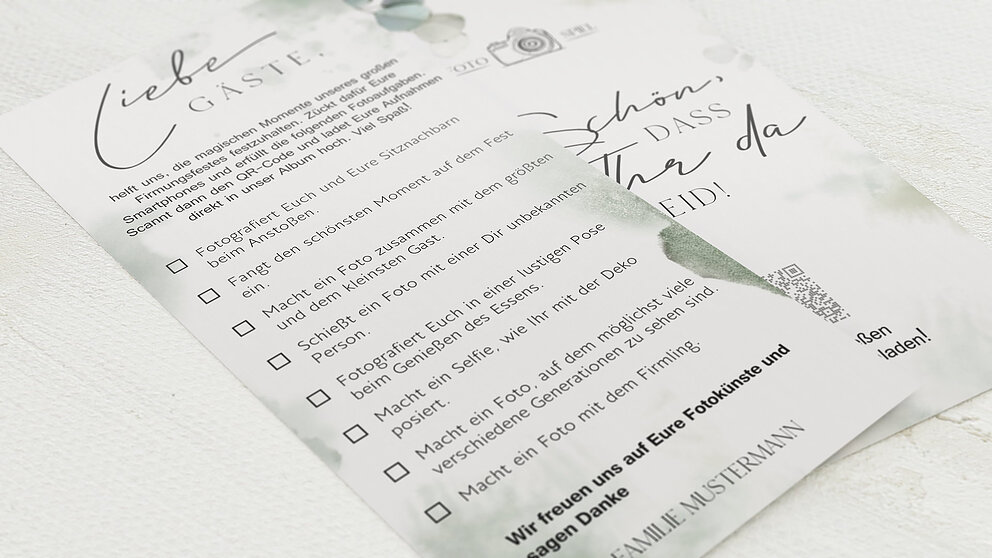 Liebe
GÄSTE,
helft uns, die magischen Momente unseres großen
Firmungsfestes festzuhalten. Zückt dafür Eure
Smartphones und erfüllt die folgenden Fotoaufgaben.
Scannt dann den QR-Code und ladet Eure Aufnahmen
direkt in unser Album hoch. Viel Spaß!
Fotografiert Euch und Eure Sitznachbarn
beim Anstoßen.
Fangt den schönsten Moment auf dem Fest
ein.
Macht ein Foto zusammen mit dem größten
und dem kleinsten Gast.
Schießt ein Foto mit einer Dir unbekannten
Person.
Fotografiert Euch in einer lustigen Pose
beim Genießen des Essens.
Macht ein Selfie, wie Ihr mit der Deko
posiert.
Macht ein Foto, auf dem möglichst viele
verschiedene Generationen zu sehen sind.
Macht ein Foto mit dem Firmling.
Wir freuen uns auf Eure Fotokünste und
sagen Danke
FAMILIE MUSTERMANN
FOTO SPIEL
Schön,
DASS
Ihr da
EID!
ßen
laden!